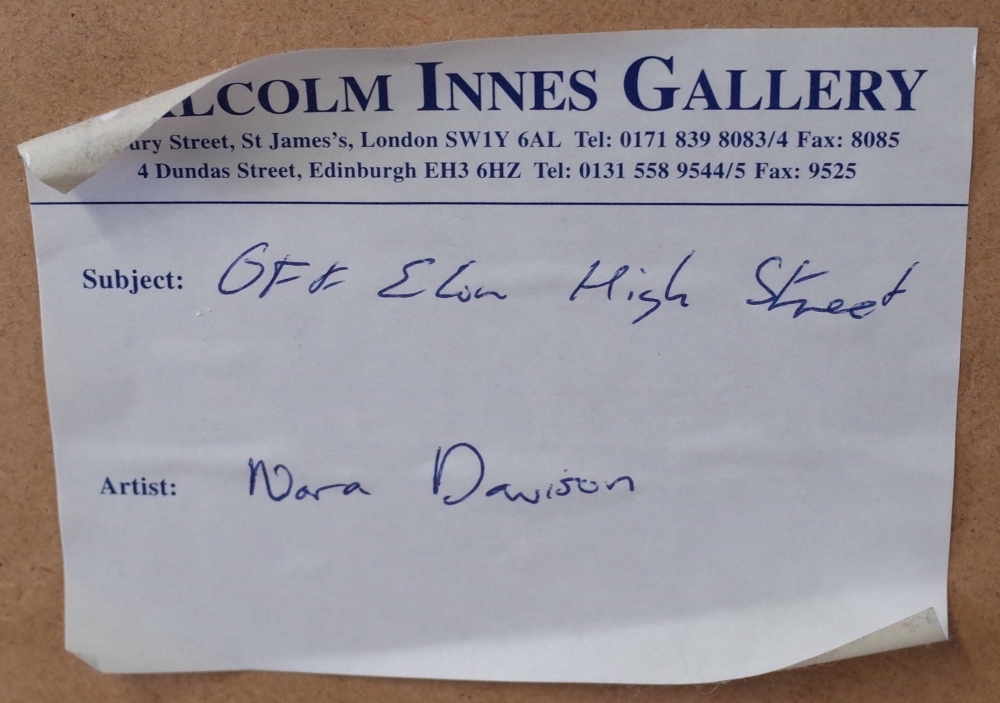 LCOLM INNES GALLERY
ury Street, St James's, London SW1Y 6AL Tel: 0171 839 8083/4 Fax: 8085
4 Dundas Street, Edinburgh EH3 6HZ Tel: 0131 558 9544/5 Fax: 9525
Subject: Off Elon High Street
Artist: Nora Davison